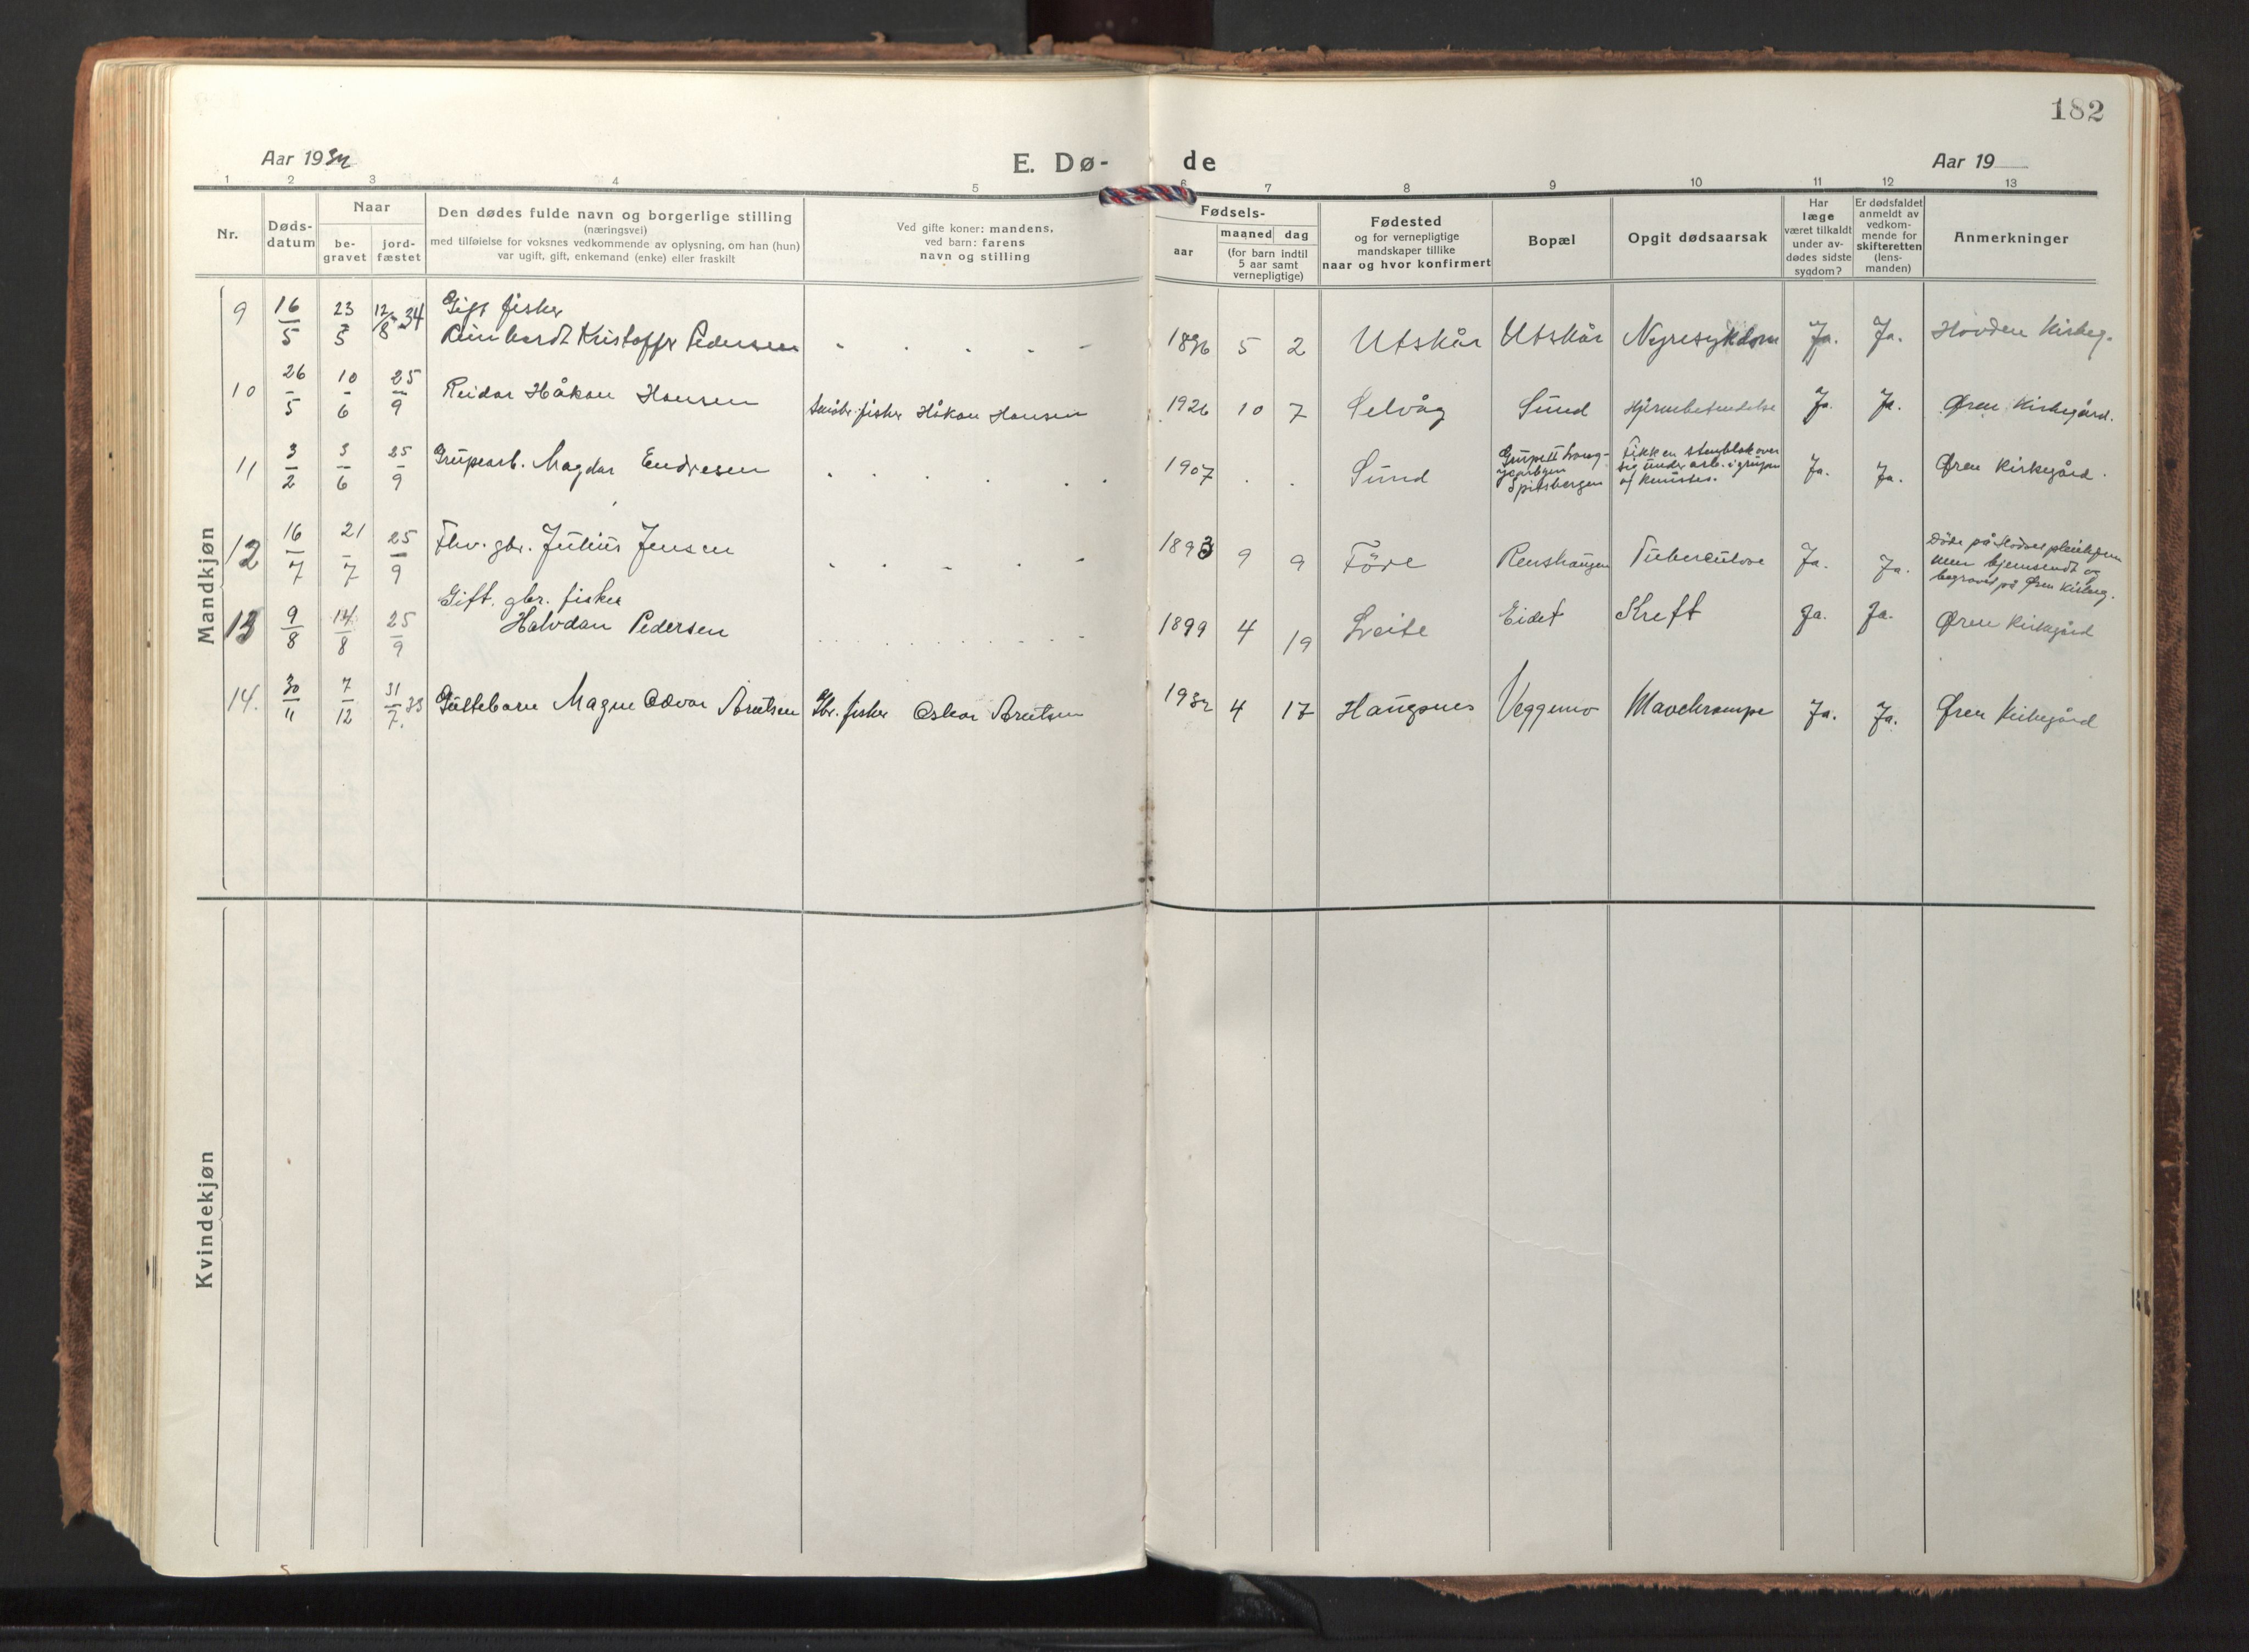 182
Aar 1932
E. Dø-
de
Aar 19
1 2 3 4 5 6 7 8 9 10 11 12 13
Nr.
Døds-
datum
Naar
be-
gravet
jord-
fæstet
Den dødes fulde navn og borgerlige stilling
(næringsvei)
med tilføielse for voksnes vedkommende av oplysning, om han (hun)
var ugift, gift, enkemand (enke) eller fraskilt
Ved gifte koner: mandens,
ved barn: farens
navn og stilling
Fødsels-
aar
maaned dag
(for barn indtil
5 aar samt
vernepligtige)
Fødested
og for vernepligtige
mandskaper tillike
naar og hvor konfirmert
Bopæl
Opgit dødsaarsak
Har
læge
været tilkaldt
under av-
dødes sidste
sygdom?
Er dødsfaldet
anmeldt av
vedkom-
mende for
skifteretten
(lens-
manden)
Anmerkninger
Mandkjøn
9 16/5 23/5 12/8-34 Gift fisker
Reinhardt Kristoffer Pedersen 1896 5 2 Utskår Utskår Nyresykdom Ja. Ja. Hovden Kirkeg.
10 26/5 10/6 25/9 Reidar Håkon Hansen fisker Håkon Hansen 1926 10 7 Selvåg Sund Hjernebetendelse Ja. Ja. Øren Kirkegård.
11 3/2 3/6 25/9 Grupearb. Magdar Endresen 1907 Sund
Grupe II Long-
yearbyen
Spitsbergen
Fikk en stenblok over
sig under arb. i grupen
Ja. Ja. Øren Kirkegård.
12 16/7 21/7 25/9 Fhv. gbr. Julius Jensen 1893 9 9 Före Renshaugen Tuberculose Ja. Ja.
Döde på pleiehjem
men hjemsendt og
begravet på Øren Kirkeg.
13 9/8 14/8 25/9 Gift. gbr. fisker
Halvdan Pedersen 1899 4 19 Eidet Kreft Ja. Ja. Øren Kirkegård
14. 30/11 7/12 31/7.33 Guttebarn Magne Odvar Arntsen Gbr. fisker Oskar Arntsen 1932 4 17 Haugsnes Veggemo Mavekrampe Ja. Ja. Øren Kirkegård
Kvindekjøn